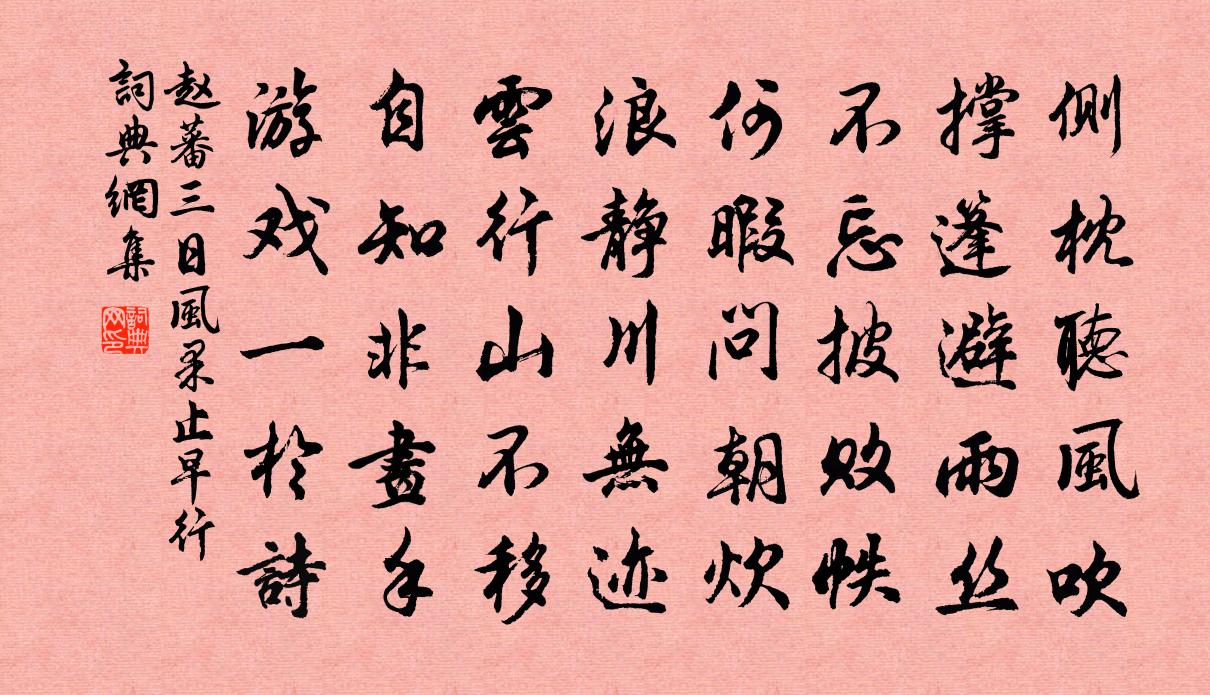 側枕聽風吹
撑蓬避雨丝
不忘披败帙
何暇問朝炊
浪静川無迹
雲行山不移
自知非畫手
游戏一於詩
赵蕃三日風雨止早行
詞典網集
詞典网印